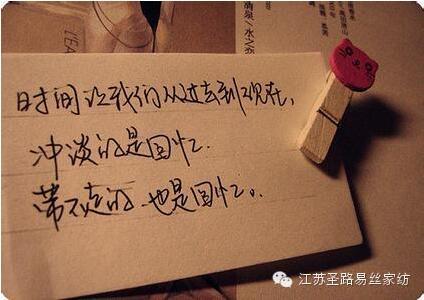 酒泉/水之恋
时间让我们从过去到现在，
冲淡的是回忆.
带不走的.也是回忆。
江苏圣路易丝家纺